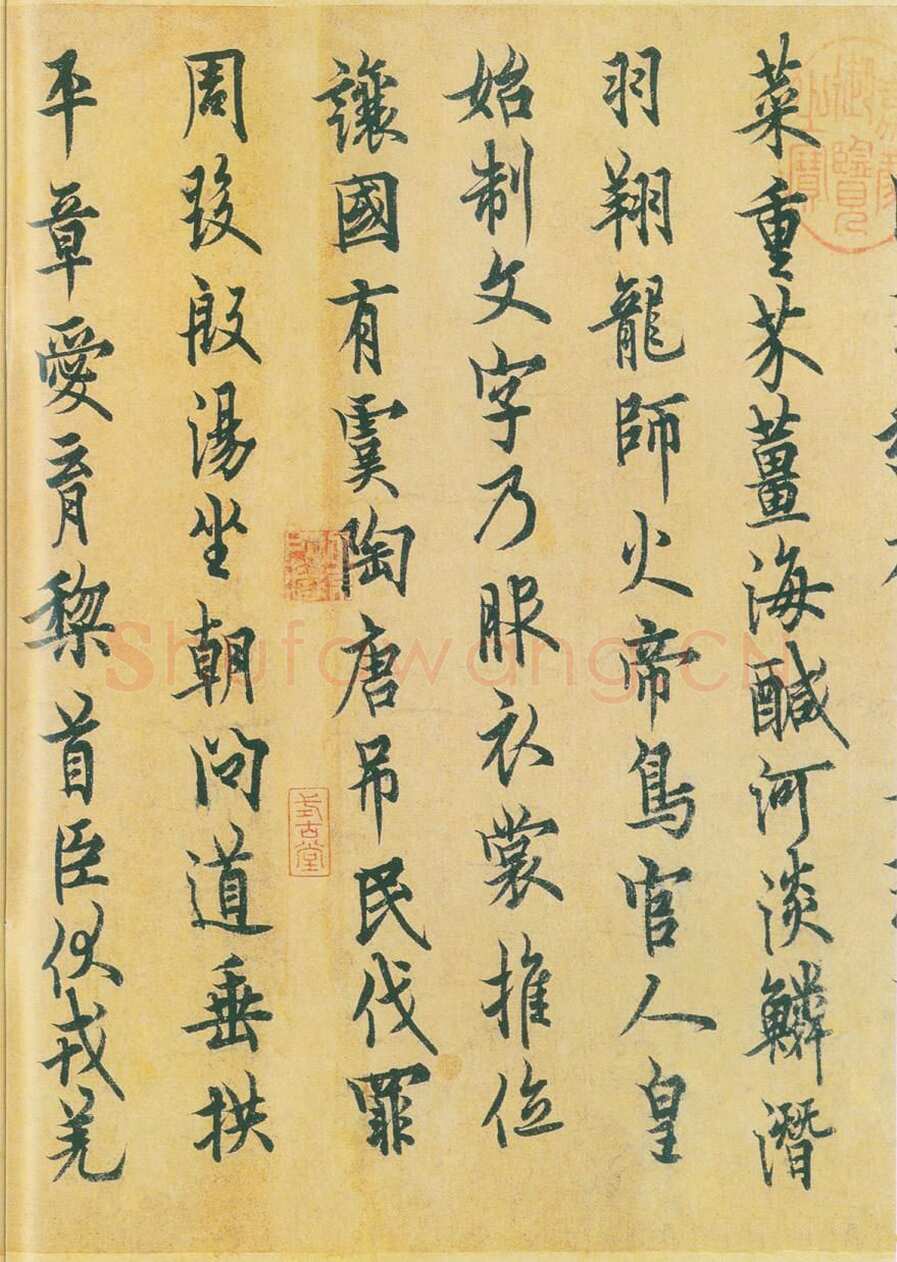 嘉慶御覽之寶
菜重芥薑海醎河淡鱗潛
羽翔龍師火帝鳥官人皇
始制文字乃服衣裳推位
讓國有虞陶唐吊民伐罪
式古堂
周發殷湯坐朝問道垂拱
平章愛育黎首臣伏戎羌
Shufawang.CN